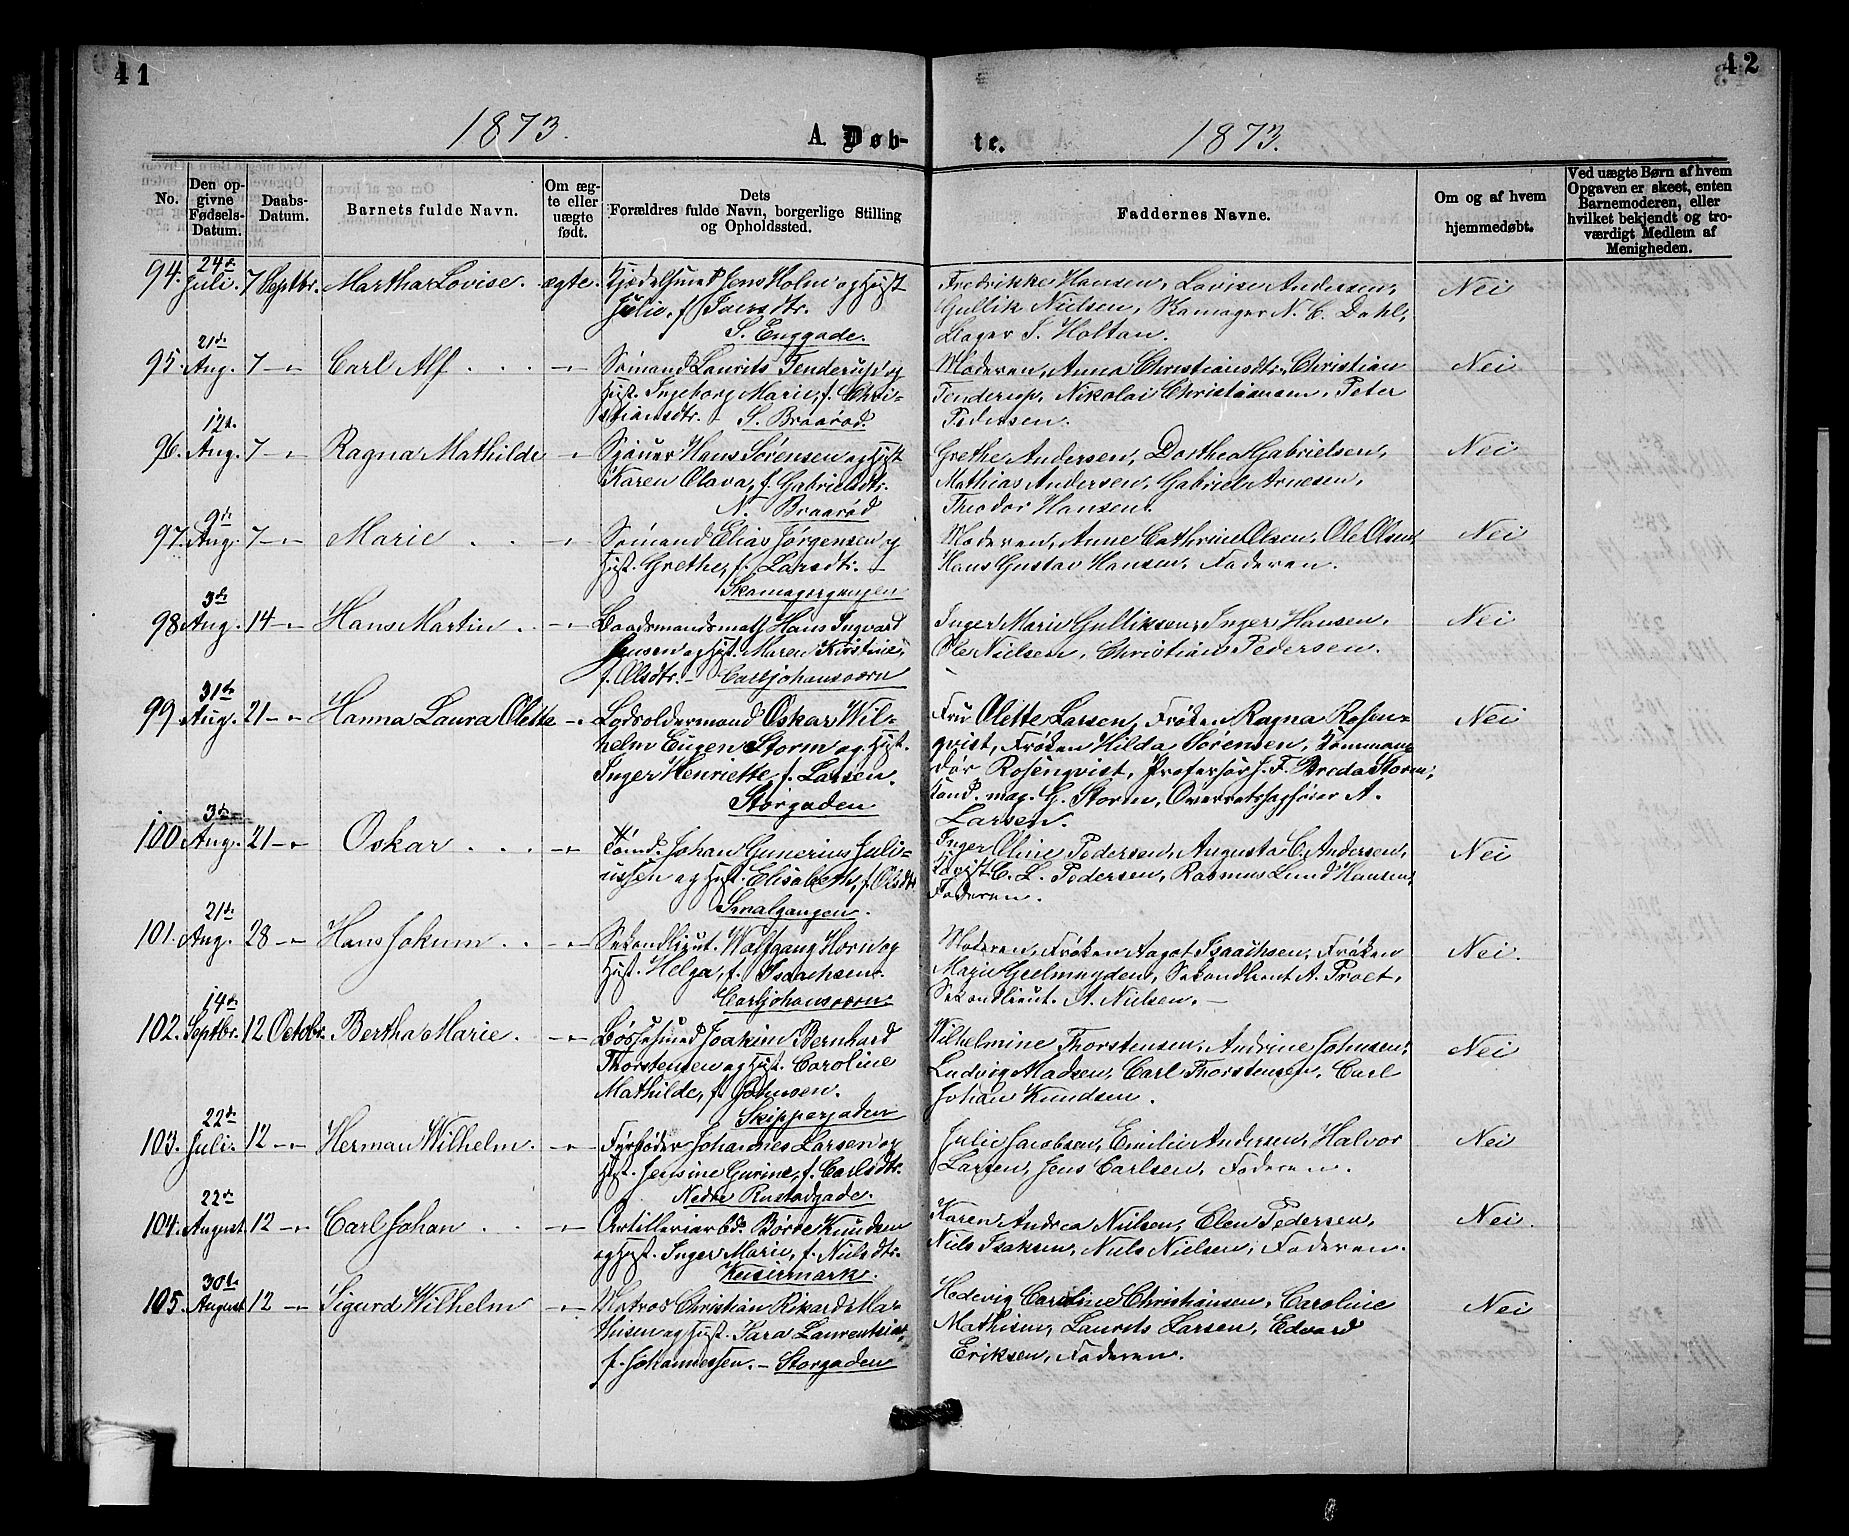 41
42
1873.
A. Døb-
te.
1873.
No.
Den op-
givne
Fødsels-
Datum.
Daabs-
Datum.
Barnets fulde Navn.
Om æg-
te eller
uægte
født.
Dets
Forældres fulde Navn, borgerlige Stilling
og Opholdssted.
Faddernes Navne.
Om og af hvem
hjemmedøbt.
Ved uægte Børn af hvem
Opgaven er skeet, enten
Barnemoderen, eller
hvilket bekjendt og tro-
værdigt Medlem af
Menigheden.
94. 24de Juli. 7 Septbr. Martha Lovise. ægte. Kjedelsmed Jens Holm og Hust
Julie, f. Iversdtr.
S. Enggade.
Fredrikke Hansen, Lovise Andersen,
Gullik Nielsen, Skomager N. C. Dahl,
Slager I. Holtan.
Nei
95. 21de Aug. 7 -"- Carl Alf -"- Sømand Laurits Tenderup og
Hust. Ingeborg Marie, f. Chri-
stiansdtr. - S. Braarød.
Moderen, Anna Christiansdtr, Christian
Tenderup, Nikolai Christiansen, Peter
Pedersen.
Nei
96. 12te Aug. 7 -"- Ragna Mathilde -"- Sjouer Hans Sørensen og Hust
Karen Olava, f. Gabrielsdtr.
N. Braarød
Grethe Andersen, Dorthea Gabrielsen,
Mathias Andersen, Gabriel Arnesen,
Theodor Hansen.
Nei
97. 9de Aug. 7 -"- Marie -"- Sømand Elias Jørgensen og
Hust. Grethe, f. Larsdtr. -
Skomagergangen
Moderen, Anne Cathrine Olsen, Ole Olsen,
Hans Gustav Hansen, Faderen.
Nei
98 3de Aug. 14 -"- Hans Martin -"- Baadsmandsmath Hans Ingvard
Jensen og Hust. Maren Kirstine,
f. Olsdtr. - Carljohansværn
Inger Marie Gulliksen, Inger Hansen,
Ole Nielsen, Christian Pedersen.
Nei
99 31te Aug. 21 -"- Hanna Laura Olette -"- Lodsoldermand Oskar Wil-
helm Eugen Storm og Hust.
Inger Henriette, f. Larsen.
Storgaden
Fru Olette Larsen, Frøken Ragna Rosen-
qvist, Frøken Hilda Sørensen, Komman-
dør Rosenqvist, Professor J. F. Breda Storm,
Cand. mag. G. Storm, Overretssagfører A.
Larsen.
Nei
100 3die Aug. 21 -"- Oskar -"- Tømd. Johan Gunerius Juli-
ussen og Hust. Elisabeth, f. Olsdtr
Smalgangen.
Inger Oline Pedersen, Augusta C. Andersen,
C. L. Pedersen, Rasmus Lund Hansen,
Faderen.
Nei
101. 21de Aug. 28 -"- Hans Jokum -"- Sekondlieut. Wolfgang Horn og
Hust. Helga, f. Isaachsen.
Carljohansværn.
Moderen, Frøken Aagot Isaachsen, Frøken
Marie Gjelmuyden, Sekondlieut A. Proet,
Sekondlieut. A. Nielsen. -
Nei.
102. 14de Septbr. 12 Octobr. Bertha Marie. -"- Bøssesmed Joakim Bernhard
Thorstensen og Hust. Caroline
Mathilde, f. Johnsen.
Skippergaden
Wilhelmine Thorstensen, Andrine Johnsen,
Ludvig Madsen, Carl Thorstensen, Carl
Johan Knudsen.
Nei
103. 22de Juli. 12 -"- Herman Wilhelm. -"- Fyrbøder Johannes Larsen og
Hust. Jensine Gurine, f. Carlsdtr.
Nedre Rustadgade.
Julie Jacobsen, Emilie Andersen, Halvor
Larsen, Jens Carlsen, Faderen.
Nei
104. 22de August 12 -"- Carl Johan -"- Artilleriarbd. Børre Knudsen
og Hust. Inger Marie, f. Nielsdtr.
Keisermark.
Karen Andrea Nielsen, Elen Pedersen,
Niels Isaksen, Niels Nielsen, Faderen.
Nei.
105. 30te August 12 -"- Sigurd Wilhelm -"- Matros Christian Rikard Mat-
hisen og Hust. Sara Laurentsia,
f. Johannessen. - Storgaden
Hedevig Caroline Christiansen, Caroline
Mathisen, Laurits Larsen, Edvard
Eriksen, Faderen.
Nei